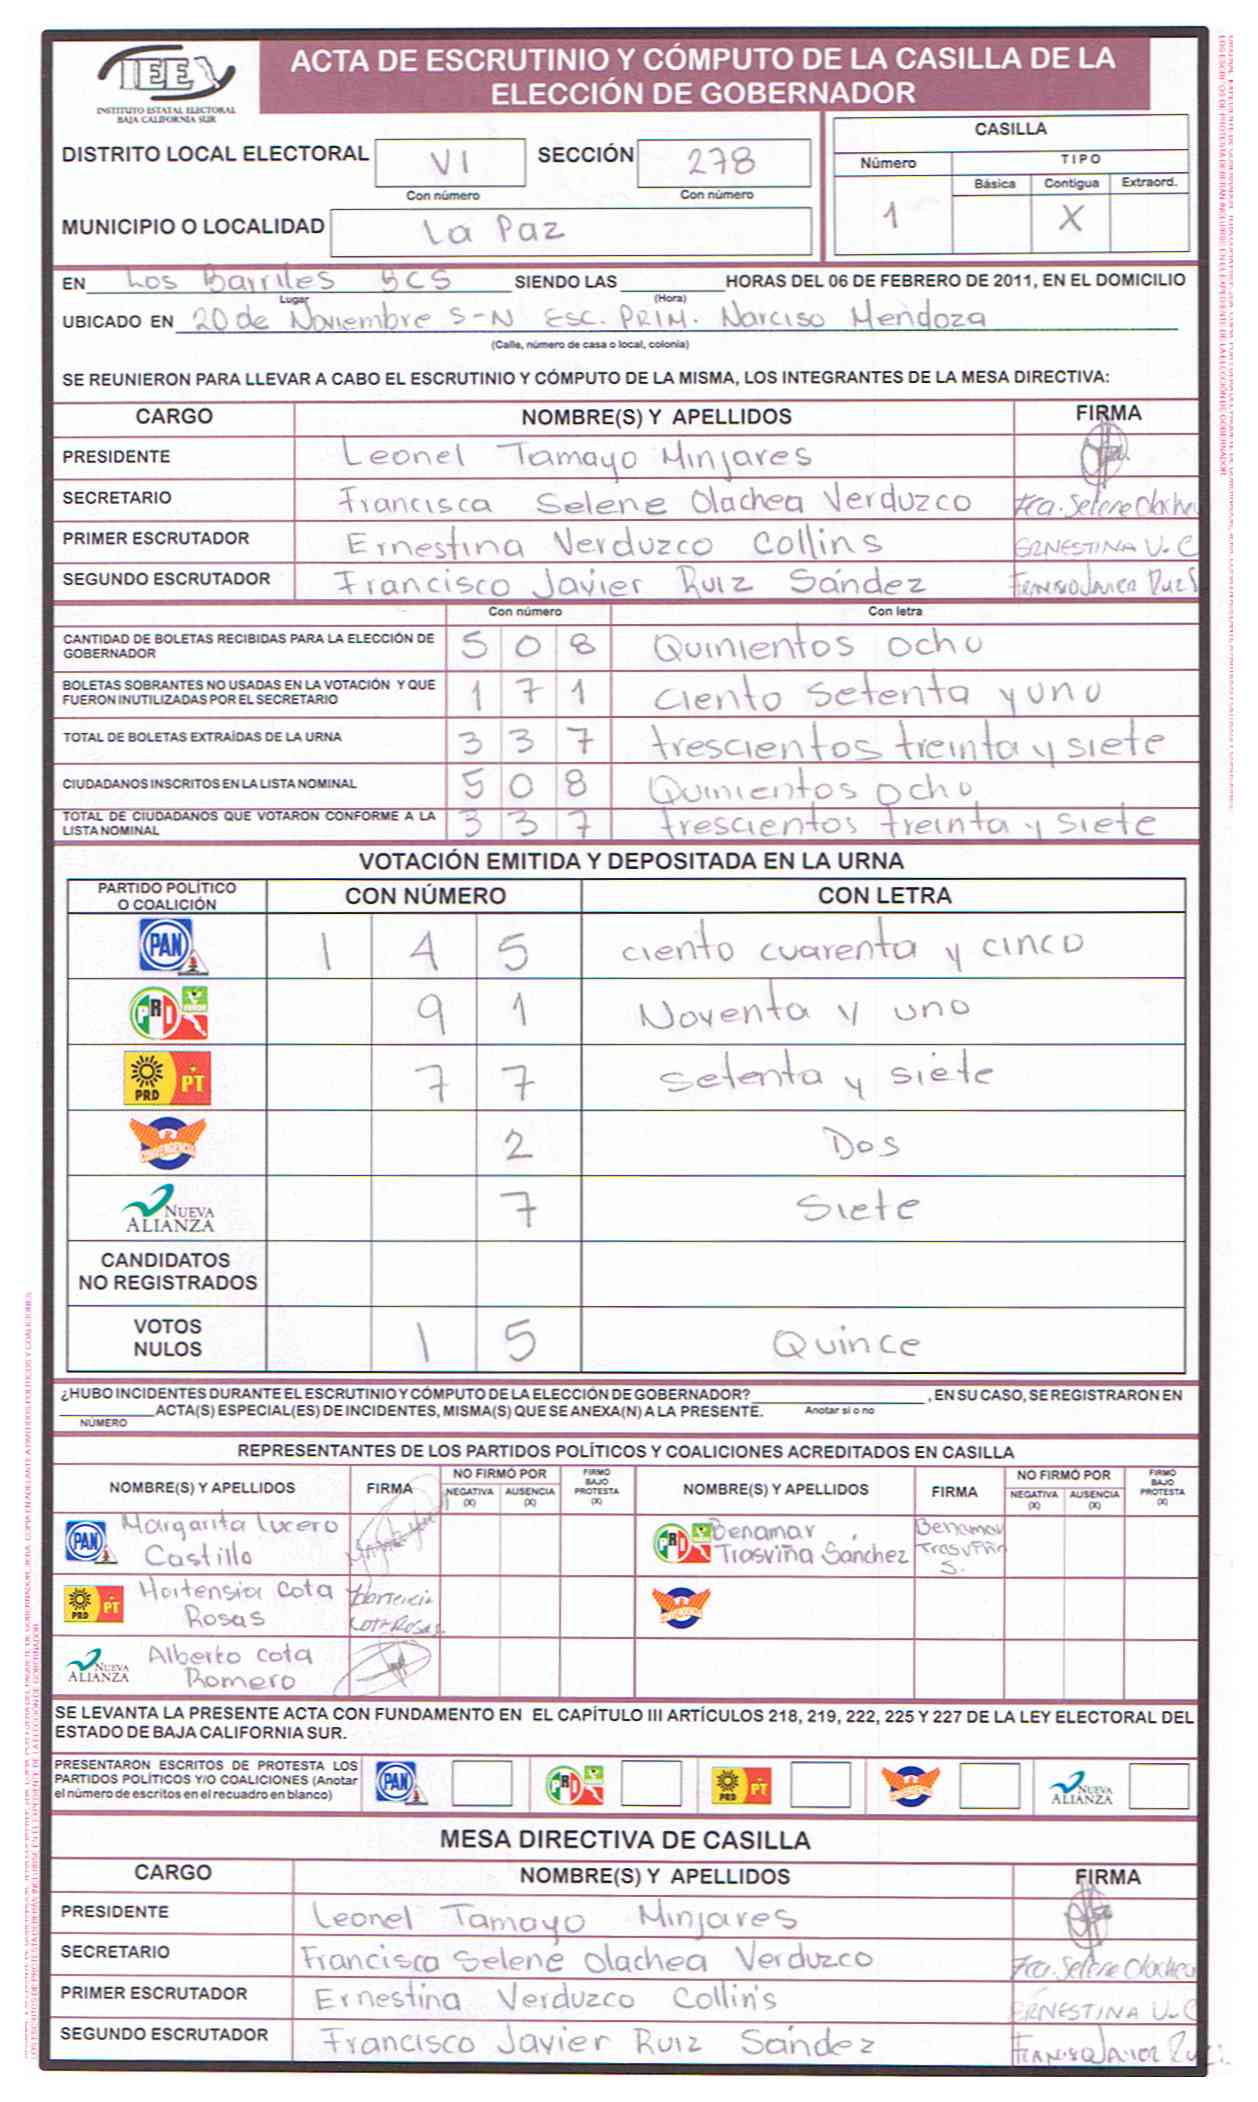 IEE
INSTITUTO ESTATAL ELECTORAL
BAJA CALIFORNIA SUR
ACTA DE ESCRUTINIO Y CÓMPUTO DE LA CASILLA DE LA
ELECCIÓN DE GOBERNADOR
DISTRITO LOCAL ELECTORAL VI SECCIÓN 278
Con número Con número
MUNICIPIO O LOCALIDAD La Paz
CASILLA
Número TIPO
Básica Contigua Extraord.
1 X
EN Los Barriles BCS SIENDO LAS HORAS DEL 06 DE FEBRERO DE 2011, EN EL DOMICILIO
Lugar (Hora)
UBICADO EN 20 de Noviembre S-N ESC. PRIM. Narciso Mendoza
(Calle, número de casa o local, colonia)
SE REUNIERON PARA LLEVAR A CABO EL ESCRUTINIO Y CÓMPUTO DE LA MISMA, LOS INTEGRANTES DE LA MESA DIRECTIVA:
CARGO NOMBRE(S) Y APELLIDOS FIRMA
PRESIDENTE Leonel Tamayo Minjares
SECRETARIO Francisca Selene Olachea Verduzco Fca. Selene Olachea
PRIMER ESCRUTADOR Ernestina Verduzco Collins ERNESTINA V. C
SEGUNDO ESCRUTADOR Francisco Javier Ruiz Sández
Con número Con letra
CANTIDAD DE BOLETAS RECIBIDAS PARA LA ELECCIÓN DE
GOBERNADOR 5 0 8 Quinientos ocho
BOLETAS SOBRANTES NO USADAS EN LA VOTACIÓN Y QUE
FUERON INUTILIZADAS POR EL SECRETARIO 1 7 1 ciento setenta y uno
TOTAL DE BOLETAS EXTRAÍDAS DE LA URNA 3 3 7 trescientos treinta y siete
CIUDADANOS INSCRITOS EN LA LISTA NOMINAL 5 0 8 Quinientos ocho
TOTAL DE CIUDADANOS QUE VOTARON CONFORME A LA
LISTA NOMINAL 3 3 7 trescientos treinta y siete
VOTACIÓN EMITIDA Y DEPOSITADA EN LA URNA
PARTIDO POLÍTICO
O COALICIÓN CON NÚMERO CON LETRA
PAN 1 4 5 ciento cuarenta y cinco
PRI 9 1 Noventa y uno
PRD PT 7 7 setenta y siete
CONVERGENCIA 2 Dos
NUEVA
ALIANZA 7 Siete
CANDIDATOS
NO REGISTRADOS
VOTOS
NULOS 1 5 Quince
¿HUBO INCIDENTES DURANTE EL ESCRUTINIO Y CÓMPUTO DE LA ELECCIÓN DE GOBERNADOR? , EN SU CASO, SE REGISTRARON EN
ACTA(S) ESPECIAL(ES) DE INCIDENTES, MISMA(S) QUE SE ANEXA(N) A LA PRESENTE. Anotar si o no
NÚMERO
REPRESENTANTES DE LOS PARTIDOS POLÍTICOS Y COALICIONES ACREDITADOS EN CASILLA
NOMBRE(S) Y APELLIDOS FIRMA NO FIRMÓ POR NEGATIVA (X) AUSENCIA (X) FIRMÓ BAJO PROTESTA (X) NOMBRE(S) Y APELLIDOS FIRMA NO FIRMÓ POR NEGATIVA (X) AUSENCIA (X) FIRMÓ BAJO PROTESTA (X)
PAN Margarita Lucero
Castillo
PRI Benamar
Trasviña Sánchez Benamar
Trasviña
S.
PRD PT Hortensia Cota
Rosas Hortencia
Cota Rosas
CONVERGENCIA
NUEVA
ALIANZA Alberto cota
Romero
SE LEVANTA LA PRESENTE ACTA CON FUNDAMENTO EN EL CAPÍTULO III ARTÍCULOS 218, 219, 222, 225 Y 227 DE LA LEY ELECTORAL DEL
ESTADO DE BAJA CALIFORNIA SUR.
PRESENTARON ESCRITOS DE PROTESTA LOS
PARTIDOS POLÍTICOS Y/O COALICIONES (Anotar
el número de escritos en el recuadro en blanco)
PAN PRI PRD PT CONVERGENCIA NUEVA ALIANZA
MESA DIRECTIVA DE CASILLA
CARGO NOMBRE(S) Y APELLIDOS FIRMA
PRESIDENTE Leonel Tamayo Minjares
SECRETARIO Francisca Selene Olachea Verduzco Fca. Selene Olachea
PRIMER ESCRUTADOR Ernestina Verduzco Collins ERNESTINA V. C
SEGUNDO ESCRUTADOR Francisco Javier Ruiz Sández